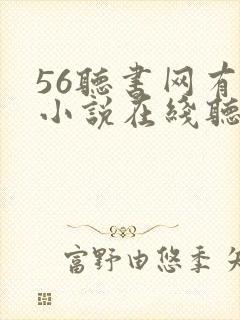 56聽書网有
小説在綫聽
富野由悠季